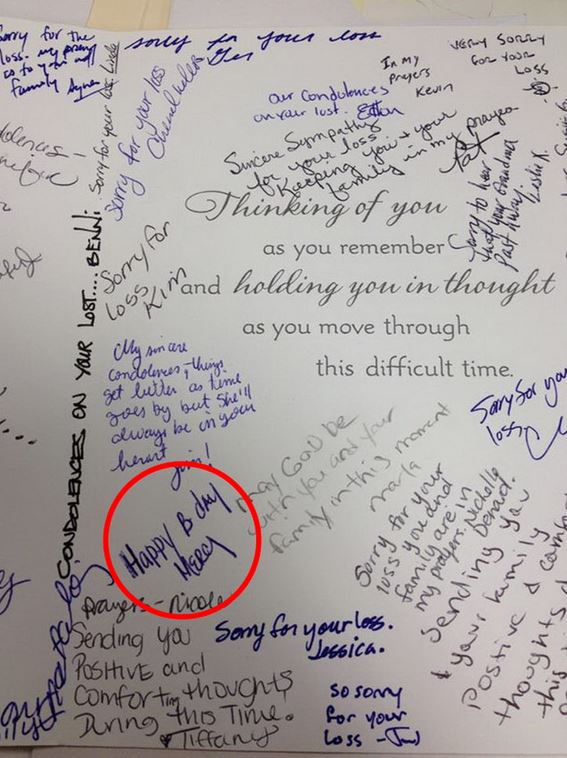 Sorry for the
loss. my prayers
family
sorry for your loss
Sorry for your loss
Sorry for your loss
In my
Prayers
Kevin
VERY SORRY
FOR YOUR
LOSS
our Condolences
on your lost.
Sincere Sympathy
for your loss.
Keeping you + your
family in my prayers
Sorry to hear
that your Grandma
Past Away
Thinking of you
as you remember
and holding you in thought
as you move through
this difficult time.
CONDOLENCES ON YOUR LOST.... BENNI
Sorry for
loss
Kim
My sincere
condolences, things
get better as time
goes by but she'll
always be in your
heart
Happy B day
Mercy
pray God be
with you and your
family in this moment
Marla
Sorry for your
loss
Sorry for your
loss you and
family are in
my prayers.
Sending you
& your family
Positive &
thoughts
this
Prayers - Nicole
Sending you
POSITIVE and
Comforting thoughts
During this Time.
Tiffany
Sorry for your loss.
Jessica.
So sorry
for your
loss